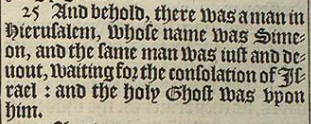 25 And behold, there was a man in
Hierusalem, whose name was Sime-
on, and the same man was iust and de-
uout, waiting for the consolation of Is-
rael : and the holy Ghost was vpon
him.